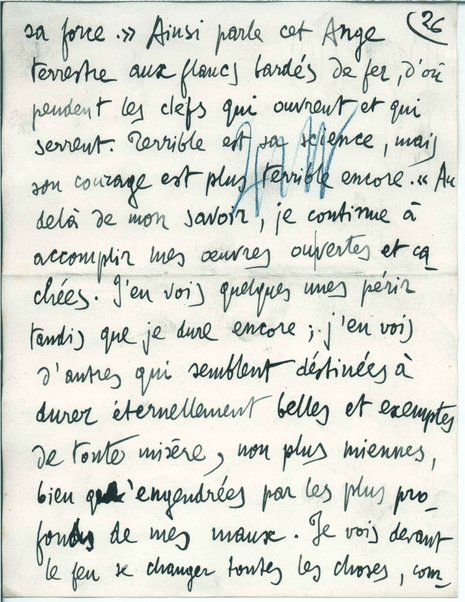 26
sa force. » Ainsi parle cet Ange
terrestre aux flancs bardés de fer, d'où
pendent les clefs qui ouvrent et qui
serrent. Terrible est sa science, mais
son courage est plus terrible encore. « Au
delà de mon savoir, je continue à
accomplir mes œuvres ouvertes et ca-
chées. J'en vois quelques unes périr
tandis que je dure encore ; j'en vois
d'autres qui semblent déstinées à
durer éternellement belles et exemptes
de toute misère, non plus miennes,
bien qu'engendrées par les plus pro-
fonds de mes maux. Je vois devant
le feu se changer toutes les choses, com-